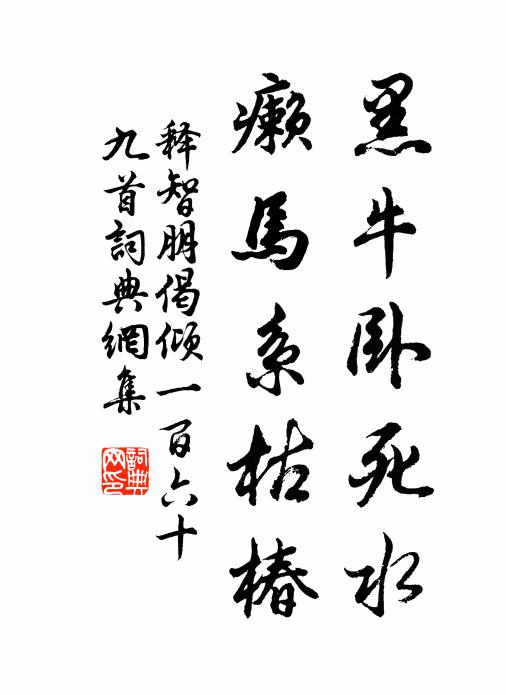 黑牛卧死水
癞馬系枯樁
释智朋偈倾一百六十
九首詞典網集
詞典网印